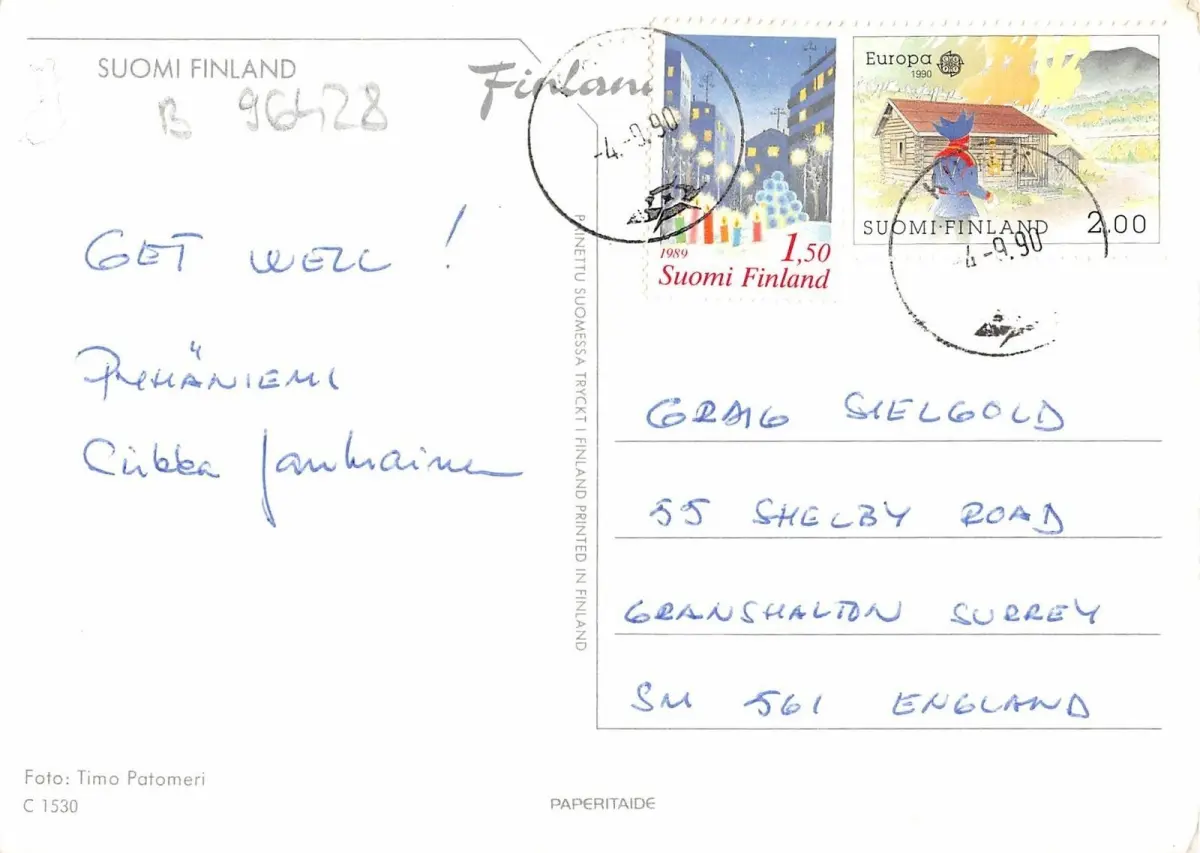 SUOMI FINLAND
B 96428
Finland
-4.-9.90
1989
1,50
Suomi Finland
Europa
1990
SUOMI·FINLAND 2.00
4-9.90
GET WELL !
PUHÄNIEMI
PAINETTU SUOMESSA TRYCKT I FINLAND PRINTED IN FINLAND
GRAIG SIELGOLD
55 SHELBY ROAD
GRANSHALTON SURREY
SM 561 ENGLAND
Foto: Timo Patomeri
C 1530
PAPERITAIDE